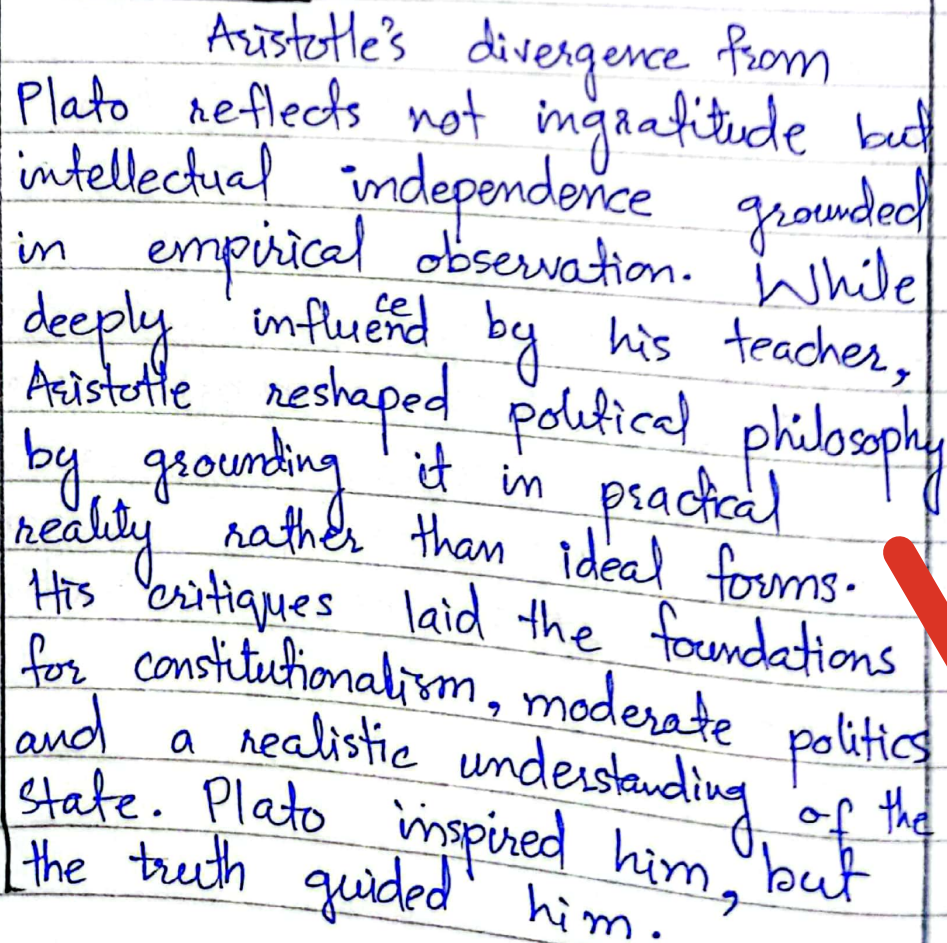 Aristotle's divergence from
Plato reflects not ingratitude but
intellectual independence grounded
in empirical observation. While
deeply influenced by his teacher,
Aristotle reshaped political philosophy
by grounding it in practical
reality rather than ideal forms.
His critiques laid the foundations
for constitutionalism, moderate politics
and a realistic understanding of the
state. Plato inspired him, but
the truth guided him.